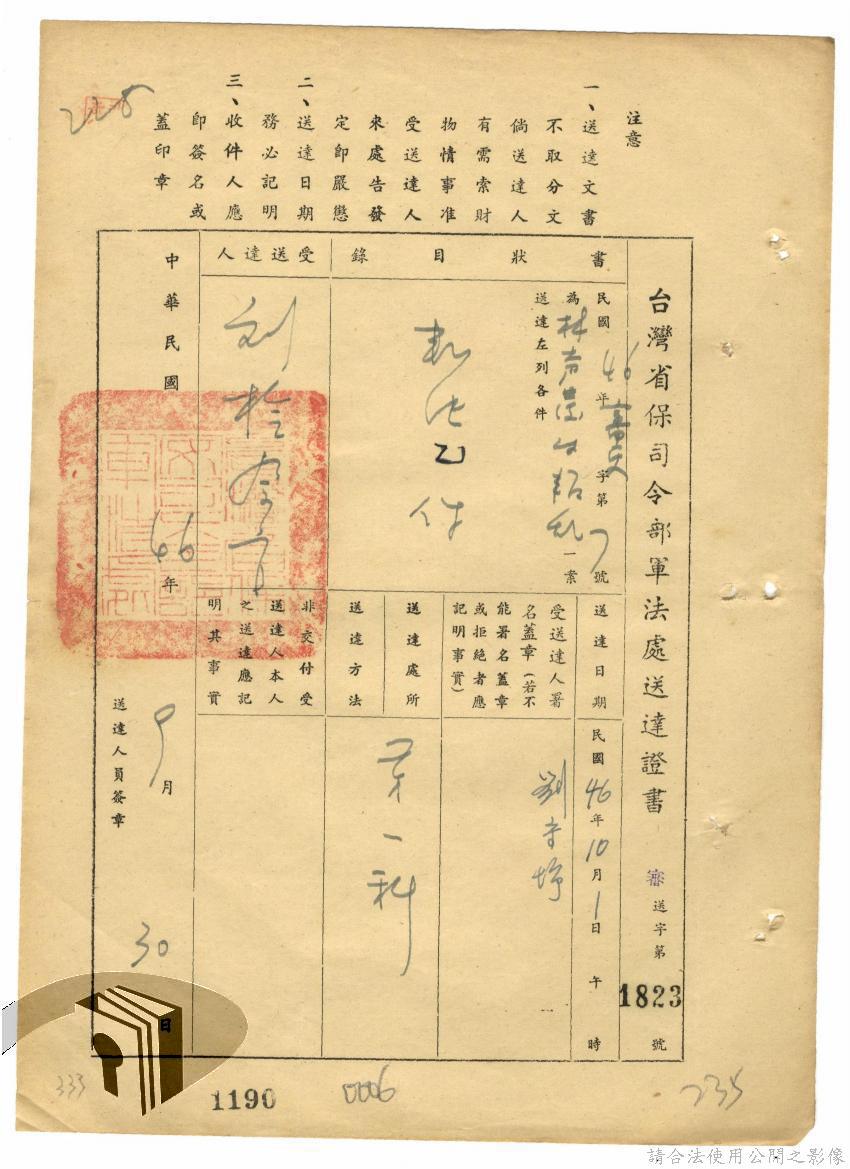 注意
一、送達文書
不取分文
倘送達人
有需索財
物情事准
受送達人
來處告發
定即嚴懲
二、送達日期
務必記明
三、收件人應
即簽名或
蓋印章
台灣省保司令部軍法處送達證書 審送字第1823號
書狀目錄
受送達人
民國46年審 字第7號
為林 一案
送達左列各件
件
送達日期
民國46年10月1日 午 時
受送達人署
名蓋章(若不
能署名蓋章
或拒絕者應
記明事實)
劉
送達處所
第一科
送達方法
非交付受
送達人本人
之送達應記
明其事實
中華民國46年9月30日
送達人員簽章
1190
0006
235
333
請合法使用公開之影像